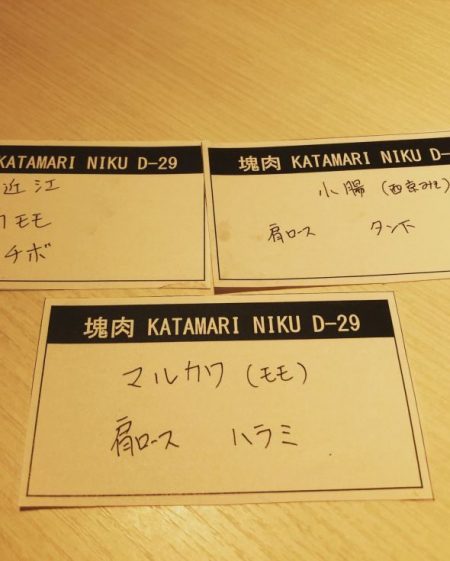 KATAMARI NIKU D-29
近江
モモ
チボ
塊肉 KATAMARI NIKU D-
小腸 (西京みそ)
肩ロース タン下
塊肉 KATAMARI NIKU D-29
マルカワ (モモ)
肩ロース ハラミ